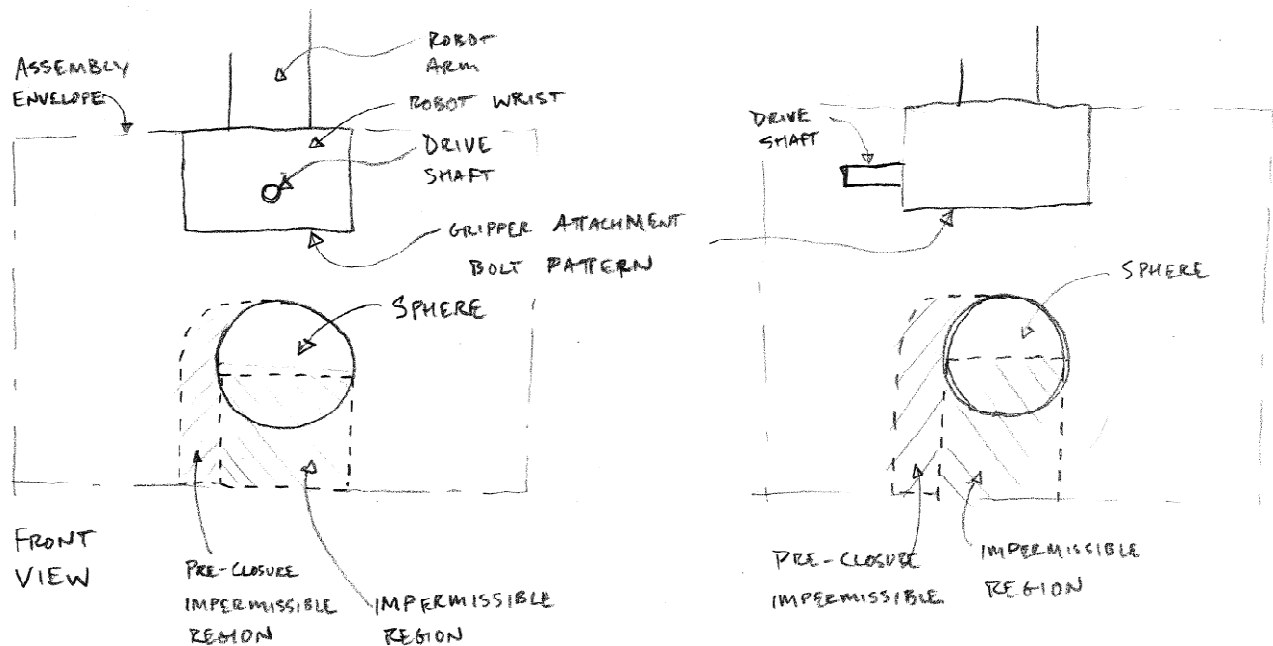 ROBOT
ARM
ASSEMBLY
ENVELOPE
ROBOT WRIST
DRIVE
SHAFT
GRIPPER ATTACHMENT
BOLT PATTERN
SPHERE
FRONT
VIEW
PRE-CLOSURE
IMPERMISSIBLE
REGION
IMPERMISSIBLE
REGION
DRIVE
SHAFT
SPHERE
PRE-CLOSURE
IMPERMISSIBLE
IMPERMISSIBLE
REGION